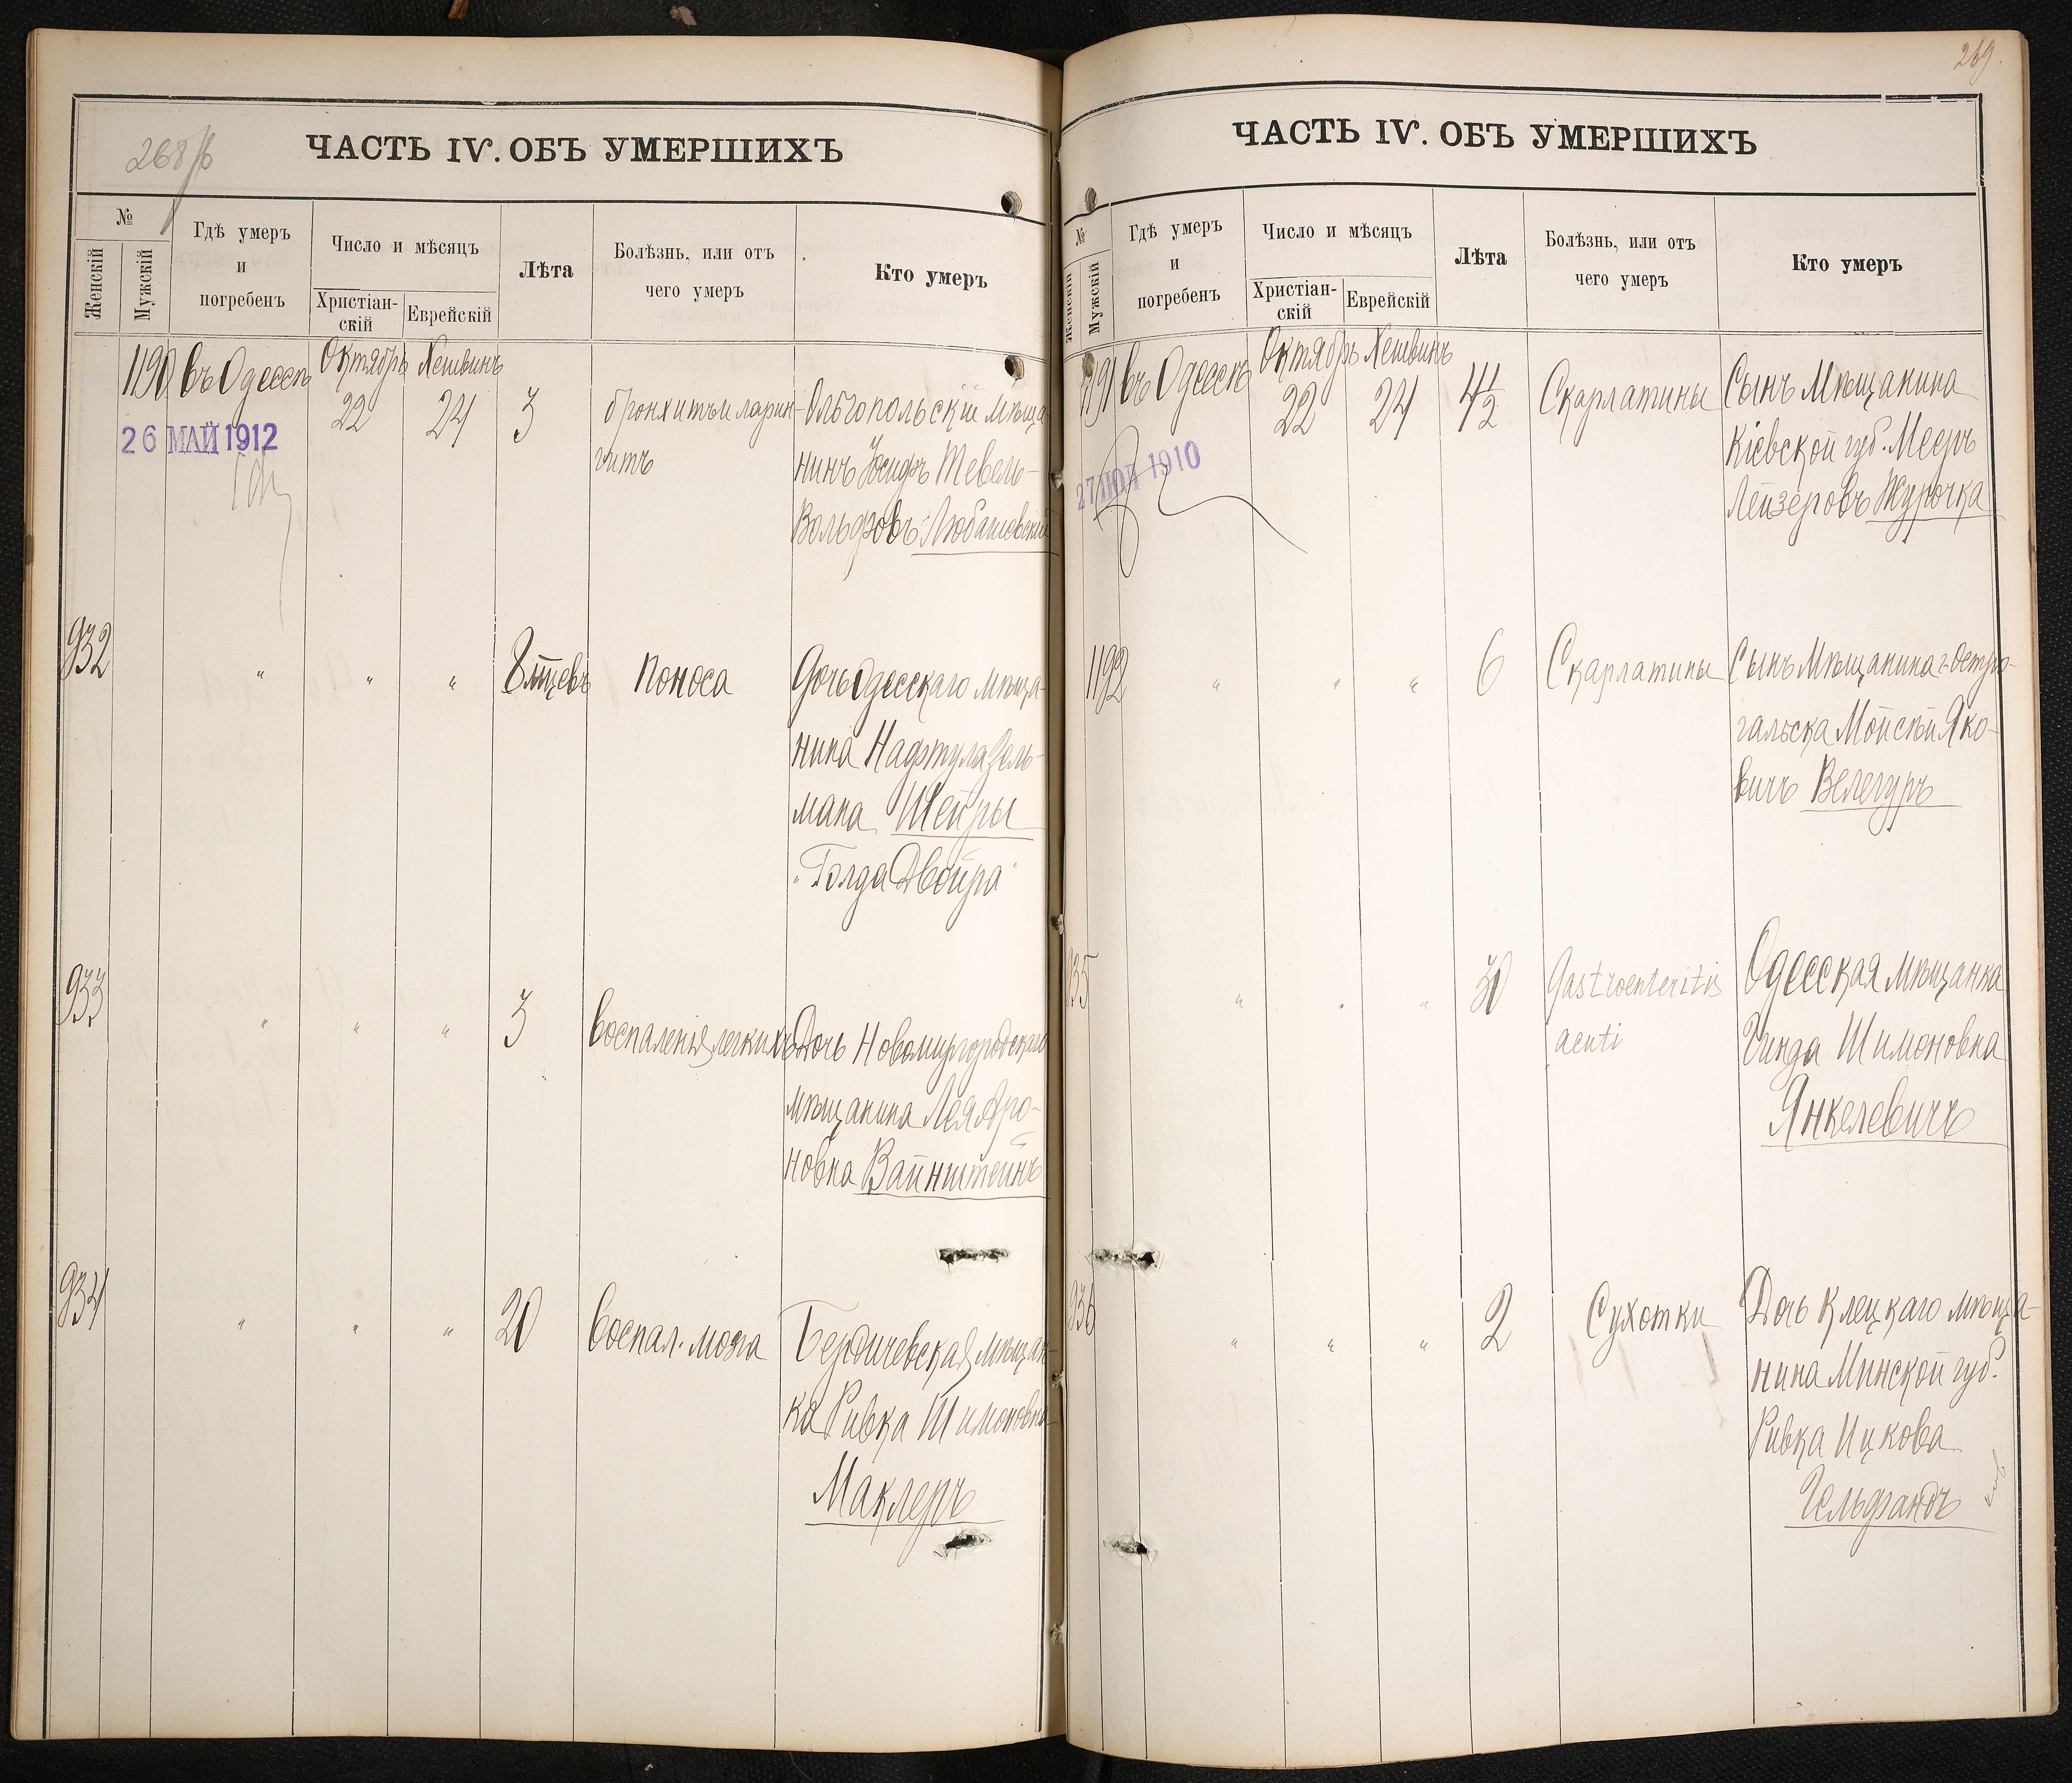 268/б
ЧАСТЬ IV. ОБЪ УМЕРШИХЪ
№
Женскій
Мужскій
Гдѣ умеръ
и
погребенъ
Число и мѣсяцъ
Христіан-
скій
Еврейскій
Лѣта
Болѣзнь, или отъ
чего умеръ
Кто умеръ
1190 въ Одессѣ Октябрь Хешвинъ
22 24 3 бронхитъ и ларин- Ольгопольскій мѣща-
гитъ
26 МАЙ 1912
нинъ Іосифъ Тевель-
Вольфовъ Любашевскій
932 " " " 8 мѣсцевъ Поноса Дочь Одесскаго мѣща-
нина Нафтула Зель-
мана Шейры
"Голда Двойра"
933 " " " 3 Воспаленія легкихъ Дочь Новомиргородскаго
мѣщанина Лея Аро-
новна Вайнштейнъ
934 " " " 20 Воспал. мозга Бердичевская мѣщан-
ка Ривка Шимоновна
Маклеръ
269.
ЧАСТЬ IV. ОБЪ УМЕРШИХЪ
№
Женскій
Мужскій
Гдѣ умеръ
и
погребенъ
Число и мѣсяцъ
Христіан-
скій
Еврейскій
Лѣта
Болѣзнь, или отъ
чего умеръ
Кто умеръ
1191 въ Одессѣ Октябрь Хешвинъ
22 24 4 1/2 Скарлатины Сынъ Мѣщанина
Кіевской губ. Мееръ
Лейзеровъ Журочка
27 ІЮЛ 1910
1192 " " " 6 Скарлатины Сынъ Мѣщанина г. Остро-
гальска Мойсѣй Яко-
вичъ Велегуръ
935 " " " 30 Gastroenteritis Одесская мѣщанка
acuti
Гинда Шимоновна
Янкелевичъ
936 " " " 2 Сухотки Дочь Клецкаго мѣща-
нина Минской губ.
Ривка Ицкова
Гельфандъ